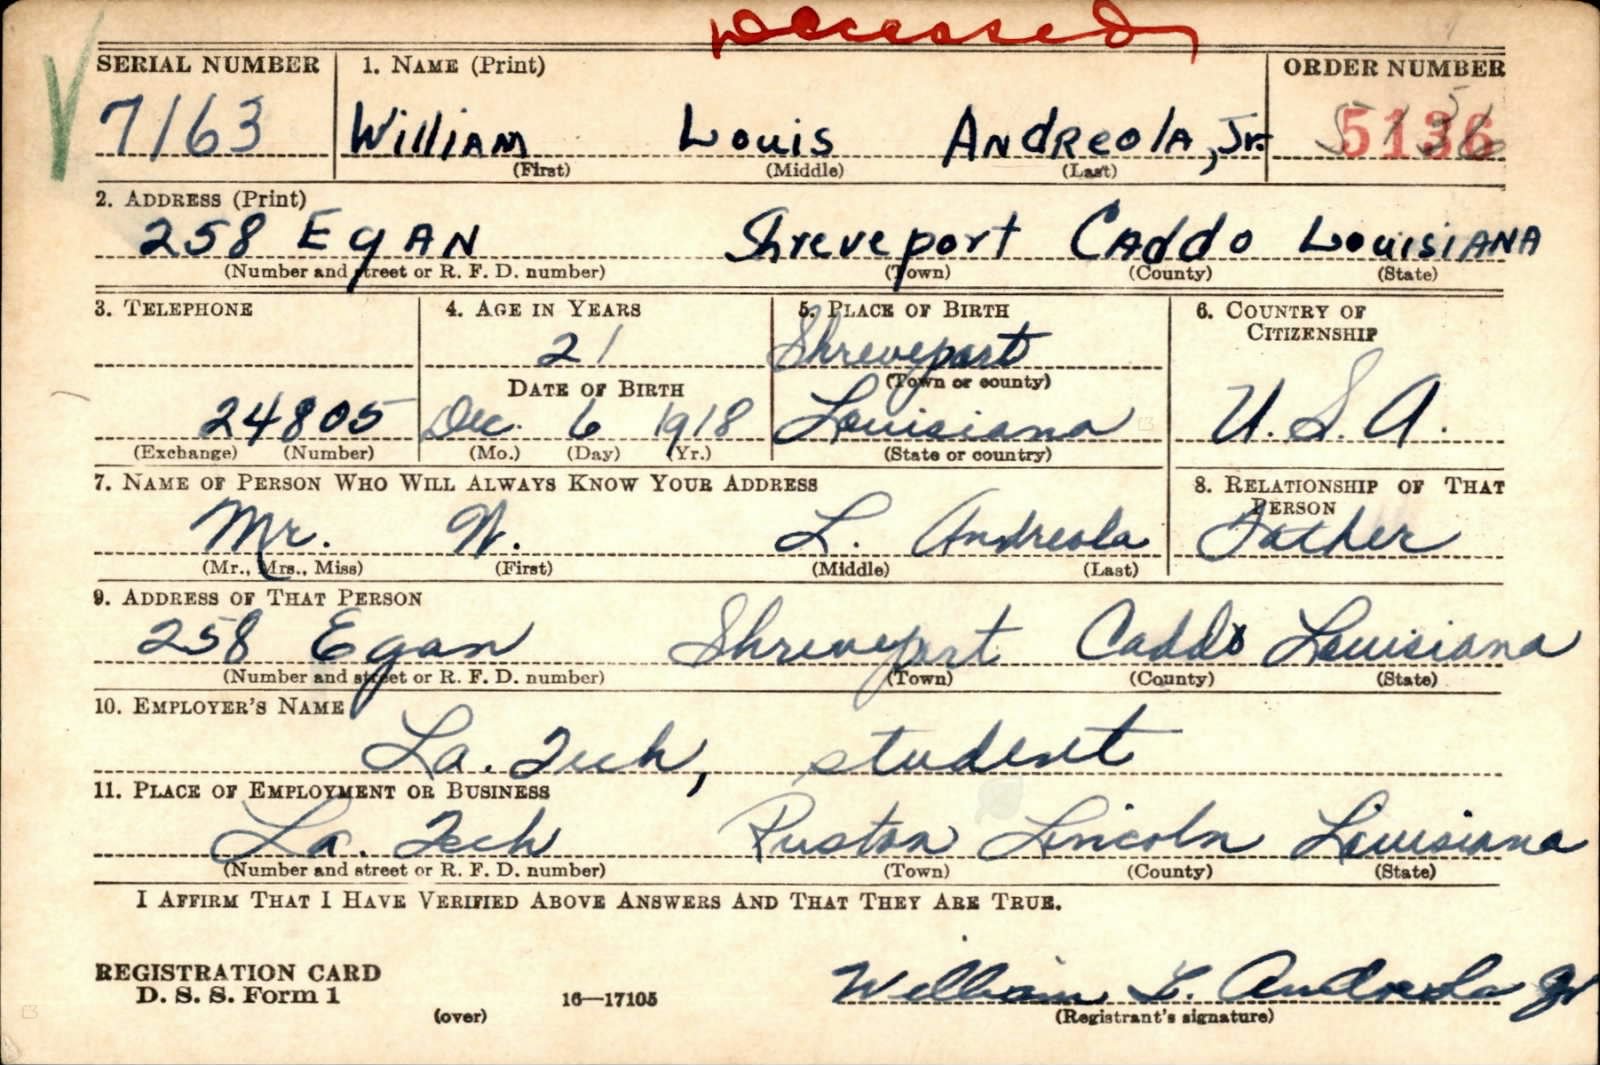 Deceased
SERIAL NUMBER 1. NAME (Print) ORDER NUMBER
7163 William Louis Andreola, Jr. 5136
(First) (Middle) (Last)
2. ADDRESS (Print)
258 Egan Shreveport Caddo Louisiana
(Number and street or R. F. D. number) (Town) (County) (State)
3. TELEPHONE 4. AGE IN YEARS 5. PLACE OF BIRTH 6. COUNTRY OF CITIZENSHIP
21 Shreveport
DATE OF BIRTH (Town or county)
24805 Dec. 6 1918 Louisiana U.S.A.
(Exchange) (Number) (Mo.) (Day) (Yr.) (State or country)
7. NAME OF PERSON WHO WILL ALWAYS KNOW YOUR ADDRESS 8. RELATIONSHIP OF THAT PERSON
Mr. W. L. Andreola Father
(Mr., Mrs., Miss) (First) (Middle) (Last)
9. ADDRESS OF THAT PERSON
258 Egan Shreveport Caddo Louisiana
(Number and street or R. F. D. number) (Town) (County) (State)
10. EMPLOYER'S NAME
La. Tech, student
11. PLACE OF EMPLOYMENT OR BUSINESS
La. Tech Ruston Lincoln Louisiana
(Number and street or R. F. D. number) (Town) (County) (State)
I AFFIRM THAT I HAVE VERIFIED ABOVE ANSWERS AND THAT THEY ARE TRUE.
REGISTRATION CARD
D. S. S. Form 1 16—17105 William L. Andreola Jr
(over) (Registrant's signature)